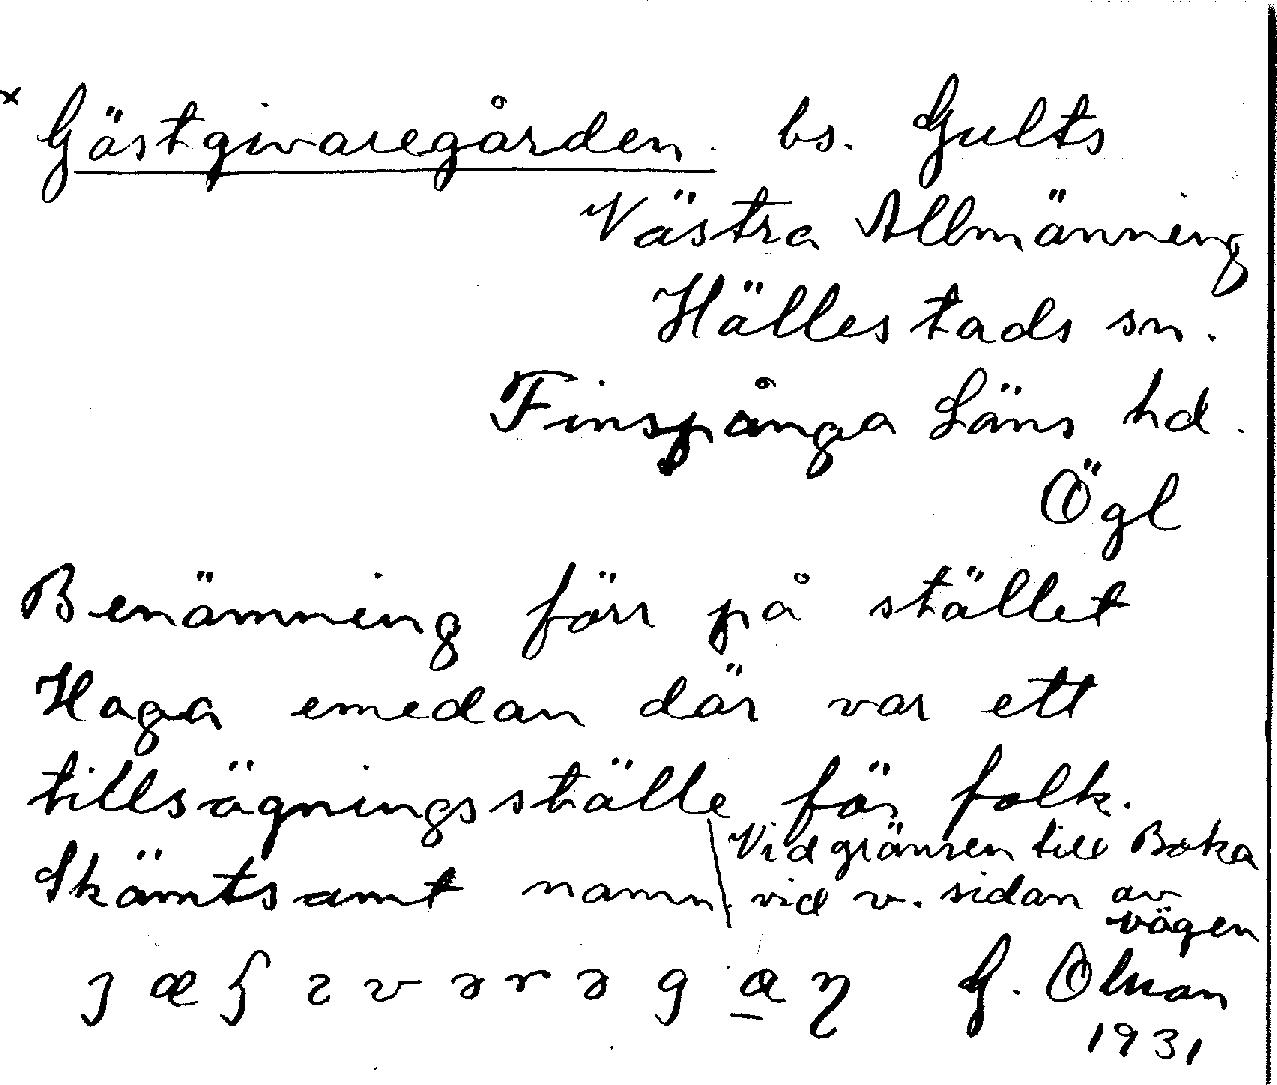 x Gästgivaregården bs. Gults
Västra Allmänning
Hällestads sn.
Finspånga Läns hd.
Ögl
Benämning förr på stället
Haga emedan där var ett
tillsägningsställe för folk.
Skämtsamt namn.
Vid gränsen till Boka
vid v. sidan av
vägen
G.
1931